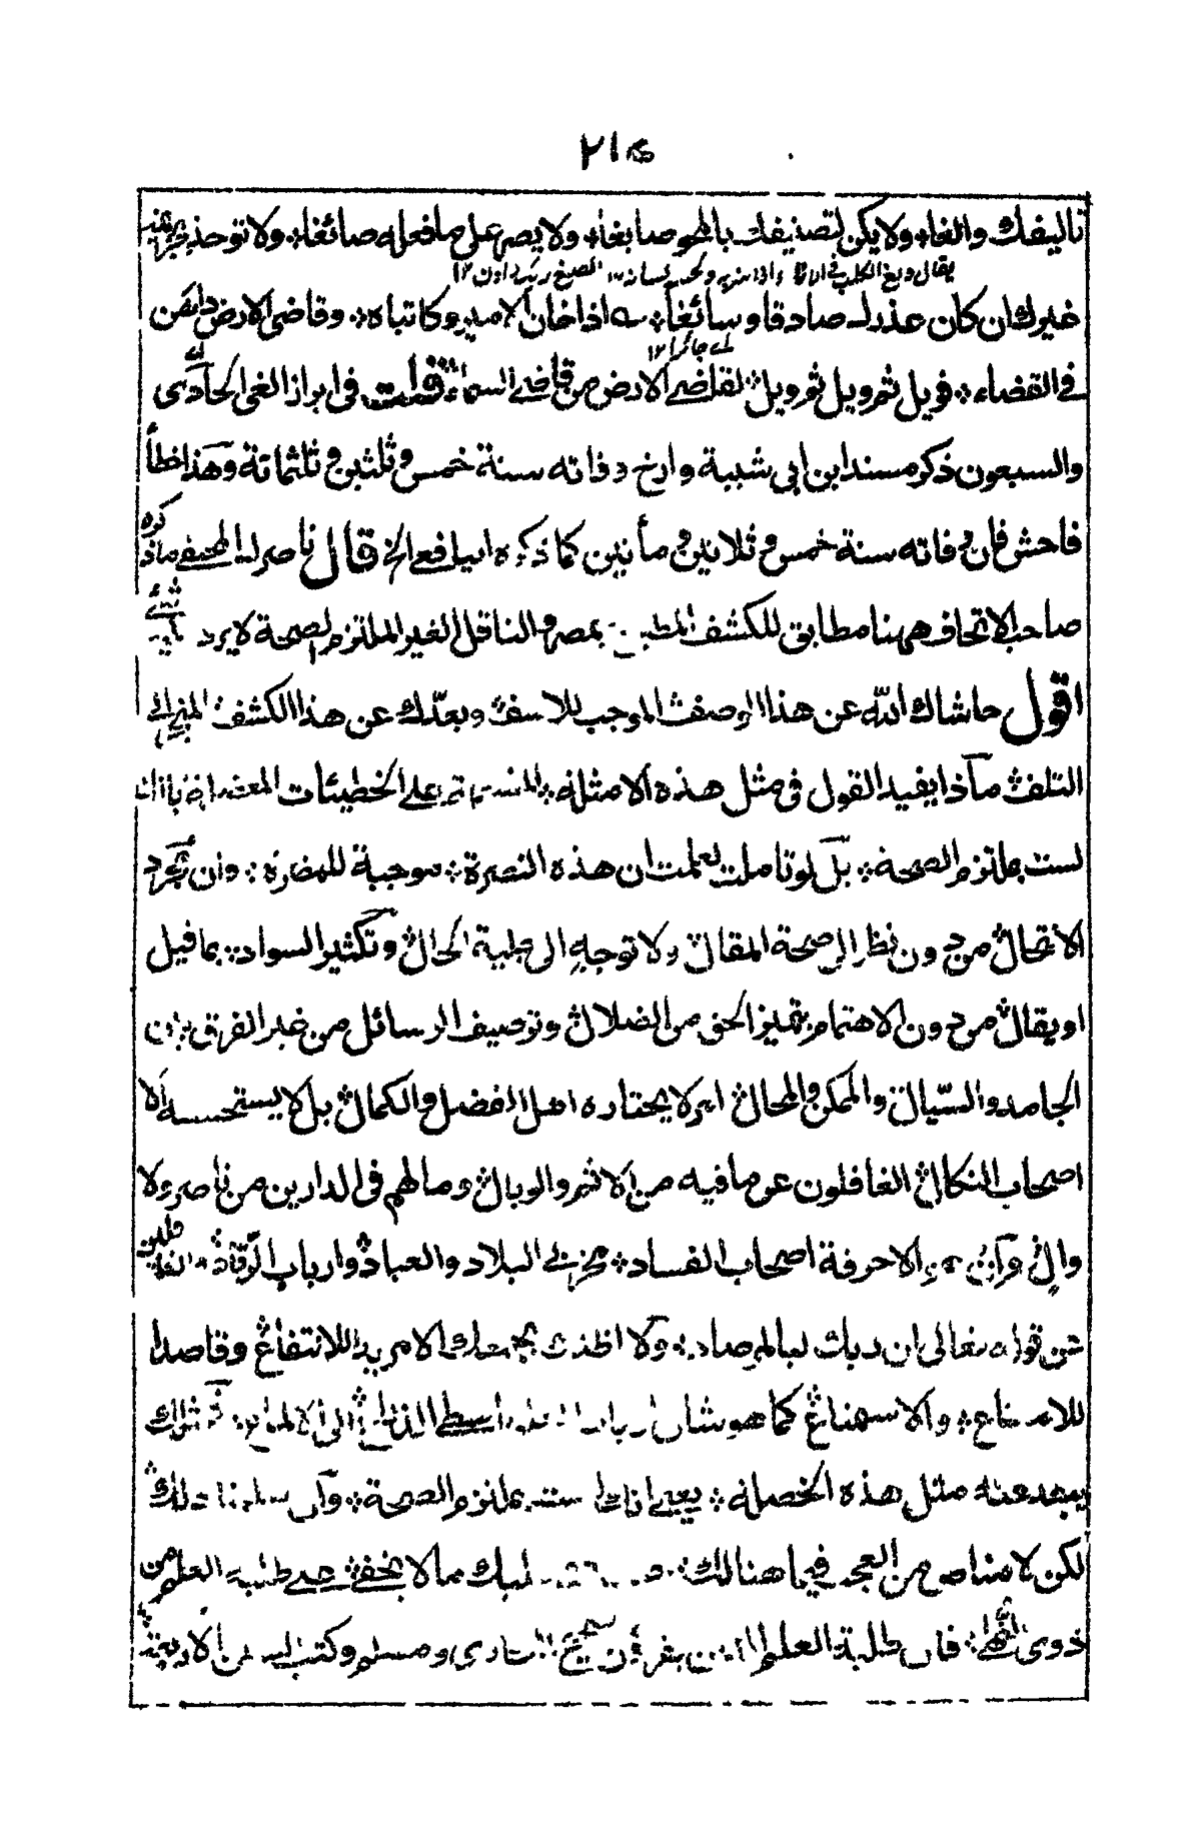 ٢١٥
تاليفك والغا، ولا يكن لتصنيفك بالمحو صابغا، ولا يصر على ما فعله صائغا، ولا توحذ
يقال ولغ الكلب فى الاناء
غيرك ان كان عذرك صادقا وسائغا، ے اذا خان الامير وكاتباه، وقاضى الارض داهن
اے جائزا ١٢
فى القضاء، فويل ثم ويل ثم ويل، لقاضى الارض من قاضى السماء، قلت فى ابراز الغى الحادى
والسبعون ذكر مسند ابن ابى شيبة وارخ وفاته سنة خمس وثلثين وثلثمائة وهذا خطأ
فاحش فان وفاته سنة خمس وثلاثين ومأتين كما ذكره اليافعى الخ قال ناصرك المختفى ما ذكره
صاحب الاتحاف ههنا مطابق للكشف المطبوع بمصر والناقل الغير الملتزم لصحة لا يرد عليه شئ
اقول حاشاك الله عن هذا الوصف الموجب للاسف، وبعدك عن هذا الكشف المنجر الى
التلف، ماذا يفيد القول فى مثل هذه الامثلة، المشتملة على الخطيئات المعضلة، بانك
لست بملتزم الصحة، بل لو تاملت لعلمت ان هذه النصرة، موجبة للمضرة، وان مجرد
الانتحال، من دون نظر الى صحة المقال، ولا توجه الى حلية الحال، وتكثير السواد، بما قيل
او يقال، من دون الاهتمام بتميز الحق من الضلال، وتوصيف الرسائل من غير الفرق بين
الجامد والسيال، والممكن والمحال، امر لا يختاره اهل الفضل والكمال، بل لا يستحسنه الا
اصحاب النكال، الغافلون عن ما فيه من الاثم والوبال، وما لهم فى الدارين من ناصر ولا
وال، الا حرفة اصحاب الفساد، مخربى البلاد والعباد، وارباب الرقاد، الغافلين
عن قوله تعالى ان ربك لبالمرصاد، ولا اظنك مريدا للانتفاع، وقاصدا
والاستمناع، كما هو شان
يبعد عنه مثل هذه الخصلة، يعنى انك لست بملتزم الصحة، وان سلمنا ذلك،
لكن لا مناص من العجب فيما هنالك، مما لا يخفى على طلبة العلم من
ذوى النهى، فان طلبة العلم الذين يقرؤن صحيح البخارى ومسلم وكتب السنن الاربعة